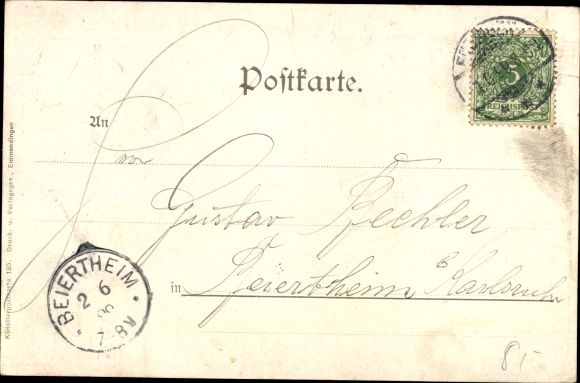 Postkarte.
5
REICHSPOST
An
Gustav Bechler
in Beiertheim b Karlsruhe
BEIERTHEIM
2 6
7-8N
Künstlerpostkarte 135. Druck- u. Verlagsges., Emmendingen
8 5